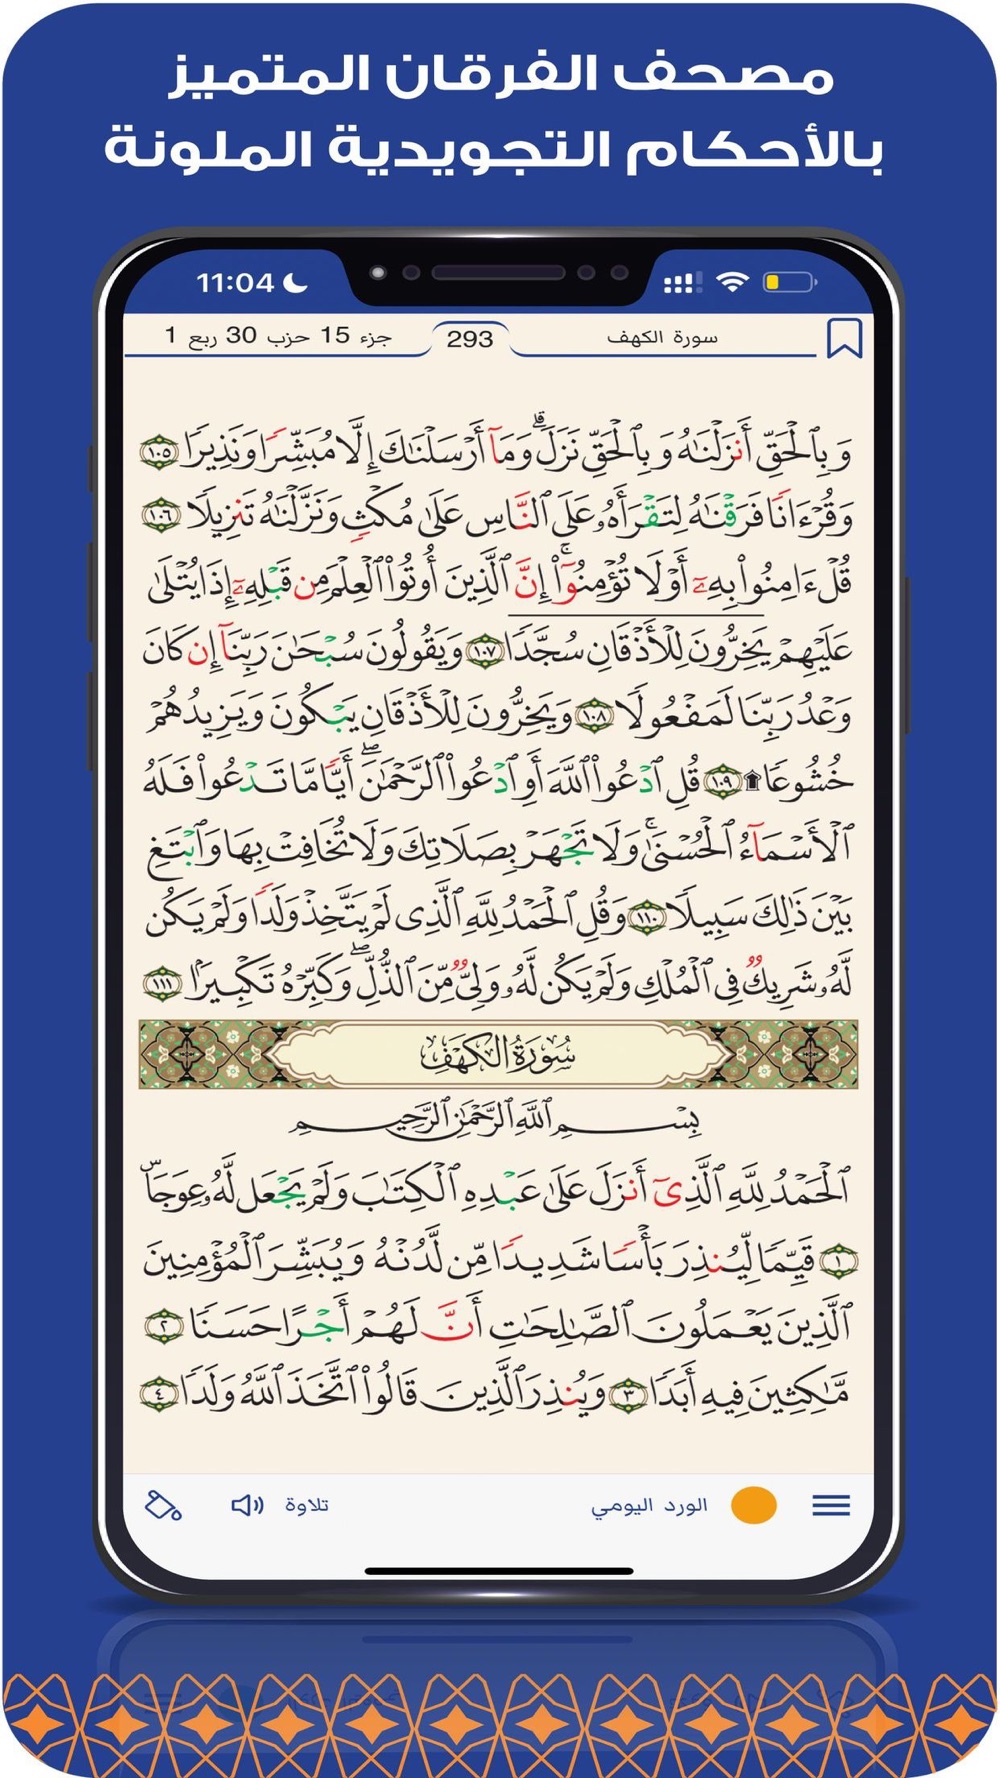 مصحف الفرقان المتميز
بالأحكام التجويدية الملونة
11:04
سورة الكهف
293
جزء 15 حزب 30 ربع 1
وَبِٱلْحَقِّ أَنزَلْنَٰهُ وَبِٱلْحَقِّ نَزَلَ ۗ وَمَآ أَرْسَلْنَٰكَ إِلَّا مُبَشِّرًا وَنَذِيرًا ١٠٥
وَقُرْءَانًا فَرَقْنَٰهُ لِتَقْرَأَهُۥ عَلَى ٱلنَّاسِ عَلَىٰ مُكْثٍ وَنَزَّلْنَٰهُ تَنزِيلًا ١٠٦
قُلْ ءَامِنُوا۟ بِهِۦٓ أَوْ لَا تُؤْمِنُوٓا۟ ۚ إِنَّ ٱلَّذِينَ أُوتُوا۟ ٱلْعِلْمَ مِن قَبْلِهِۦٓ إِذَا يُتْلَىٰ
عَلَيْهِمْ يَخِرُّونَ لِلْأَذْقَانِ سُجَّدًا ١٠٧ وَيَقُولُونَ سُبْحَٰنَ رَبِّنَآ إِن كَانَ
وَعْدُ رَبِّنَا لَمَفْعُولًا ١٠٨ وَيَخِرُّونَ لِلْأَذْقَانِ يَبْكُونَ وَيَزِيدُهُمْ
خُشُوعًا ۩ ١٠٩ قُلِ ٱدْعُوا۟ ٱللَّهَ أَوِ ٱدْعُوا۟ ٱلرَّحْمَٰنَ ۖ أَيًّا مَّا تَدْعُوا۟ فَلَهُ
ٱلْأَسْمَآءُ ٱلْحُسْنَىٰ ۚ وَلَا تَجْهَرْ بِصَلَاتِكَ وَلَا تُخَافِتْ بِهَا وَٱبْتَغِ
بَيْنَ ذَٰلِكَ سَبِيلًا ١١٠ وَقُلِ ٱلْحَمْدُ لِلَّهِ ٱلَّذِى لَمْ يَتَّخِذْ وَلَدًا وَلَمْ يَكُن
لَّهُۥ شَرِيكٌ فِى ٱلْمُلْكِ وَلَمْ يَكُن لَّهُۥ وَلِىٌّ مِّنَ ٱلذُّلِّ ۖ وَكَبِّرْهُ تَكْبِيرًۢا ١١١
سُورَةُ الكَهْفِ
بِسْمِ ٱللَّهِ ٱلرَّحْمَٰنِ ٱلرَّحِيمِ
ٱلْحَمْدُ لِلَّهِ ٱلَّذِىٓ أَنزَلَ عَلَىٰ عَبْدِهِ ٱلْكِتَٰبَ وَلَمْ يَجْعَل لَّهُۥ عِوَجَاۜ
١ قَيِّمًا لِّيُنذِرَ بَأْسًا شَدِيدًا مِّن لَّدُنْهُ وَيُبَشِّرَ ٱلْمُؤْمِنِينَ
ٱلَّذِينَ يَعْمَلُونَ ٱلصَّٰلِحَٰتِ أَنَّ لَهُمْ أَجْرًا حَسَنًا ٢
مَّٰكِثِينَ فِيهِ أَبَدًا ٣ وَيُنذِرَ ٱلَّذِينَ قَالُوا۟ ٱتَّخَذَ ٱللَّهُ وَلَدًا ٤
الورد اليومي
تلاوة